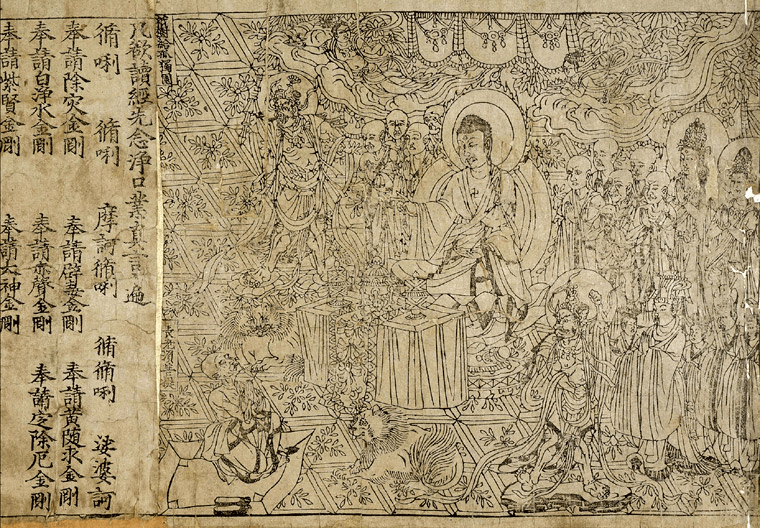 祇樹給孤獨園
長老須菩提
凡欲讀經先念淨口業真言一遍
脩唎 脩唎 摩訶脩唎 脩脩唎 娑婆訶
奉請除灾金剛 奉請辟毒金剛 奉請黄随求金剛
奉請白净水金剛 奉請赤聲金剛 奉請定除厄金剛
奉請紫賢金剛 奉請大神金剛